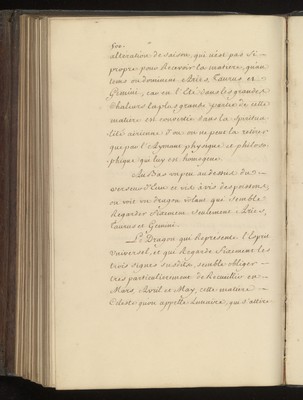 500.
altération de saison, qui n'est pas si
propre pour Recevoir la matiere, quan
tems ou dominent Aries, Taurus, et
Gemini, car en l'Eté dans les grandes
Chaleurs la plus grande partie de cette
matiere est convertie dans la spiritua
lité aërienne d'ou on ne peut la retirer
que par l'Aymant physique et philoso
phique qui luy est homogene
Au Bas un peu au dessus du
verseur d'Eau et vis à vis des poissons,
on voit un dragon volant qui semble
Regarder fixement seulement Aries,
Taurus et Gemini
Le Dragon qui Represente l'Esprit
Universel, et qui Regarde fixement les
trois signes susdits, semble obliger
tres particulierement de Recueillir en
Mars, Avril et May, cette matiere
Celeste qu'on appelle Lunaire, qui s'attire